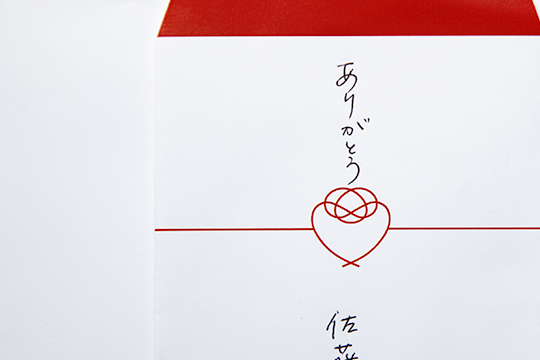 ありがとう
佐